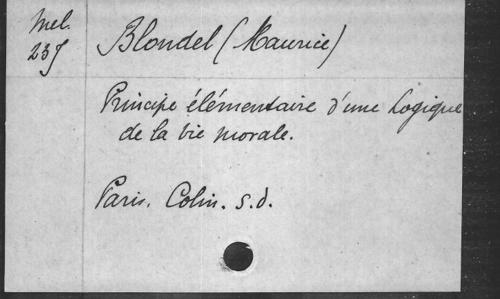 Mel.
235
Blondel (Maurice)
Principe élémentaire d'une Logique
de la vie morale.
Paris. Colin. s.d.